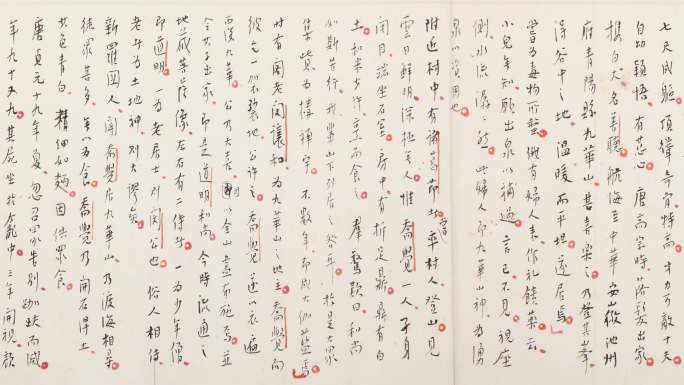 七尺成軀 頂聳奇骨特高 才力可敵十夫
自幼穎悟 有慈心 唐高宗時 落髮出家
攜白犬名善聽 航海至中華 安徽池州
府青陽縣九華山 甚喜樂之 乃登其峯
得谷中之地 溫暖而平坦 遂居焉
嘗為毒物所螫 俄有婦人來作禮饋藥云
小兒無知 願出泉以補過 言已不見 視座
側水 潺潺 此婦人即九華山神 為湧
泉以資用也
附近村中有諸葛節士 嘗率村人登山見
雲日鮮明 深極無人 惟喬覺一人孑身
閉目端坐石室 房中有折足鼎 鼎有白
土和米少許 烹而食之 羣驚歎曰 和尚
如斯苦行 我輩山下列居 咎耳 於是大眾
集資為構禪宇 不數年而成大伽藍焉
時有閣老閔讓和 為九華山之地主 喬覺向
彼乞一袈裟地 公許之 喬覺遂以衣遍
而覆九華 公乃大喜 以全山盡布施焉 並
令其子出家 即是道明和尚 今時流通之
地藏菩薩像 左右有二侍者 一為少年僧
即道明 一為老居士 則閔公也 俗人相傳
老者為土地神 則大謬矣
新羅國人 聞喬覺居九華山 乃渡海相尋
徒眾甚多 無以為食 喬覺乃開石得土
其色青白 精細如麪 因供眾食
唐貞元十九年夏 忽召眾告別 跏趺而滅
年九十又九 其屍坐於龕中 三年開視 顏